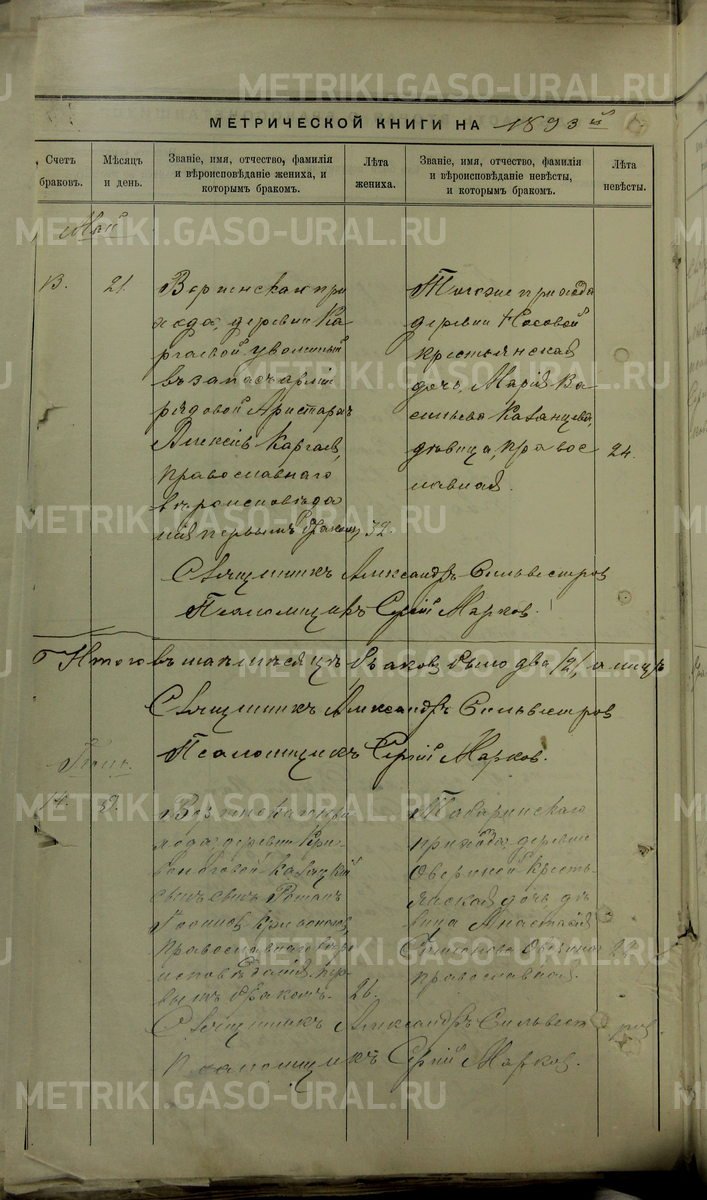 МЕТРИЧЕСКОЙ КНИГИ НА 1893 й
Счетъ браковъ.
Мѣсяцъ и день.
Званіе, имя, отчество, фамилія и вѣроисповѣданіе жениха, и которымъ бракомъ.
Лѣта жениха.
Званіе, имя, отчество, фамилія и вѣроисповѣданіе невѣсты, и которымъ бракомъ.
Лѣта невѣсты.
Май
13.
21.
деревни Ка
ргаевой уволенный
въ запасъ арміи
рядовой Аристархъ
Алексіевъ Каргаевъ,
православнаго
вѣроисповѣда
нія первымъ бракомъ
32.
Тогоже прихода
деревни Носовой
крестьянская
дочь, Марія Ва
сильева Казанцева,
дѣвица, правос
лавная.
24.
Священникъ Александръ Сильвестров
Псаломщикъ Сергій Марков.
Итого въ маѣ мѣсяцѣ браковъ было два /2/
Священникъ Александръ Сильвестров
Псаломщикъ Сергій Марков.
14.
хода, деревни
сынъ Романъ
православнаго вѣро
исповѣданія, пер
вымъ бракомъ.
26.
Табаринскаго
прихода, деревни
Овериной кресть
янская дочь, дѣ
вица Анастасія
православная.
22.
Священникъ Александръ Сильвестров
Псаломщикъ Сергій Марков.
METRIKI.GASO-URAL.RU